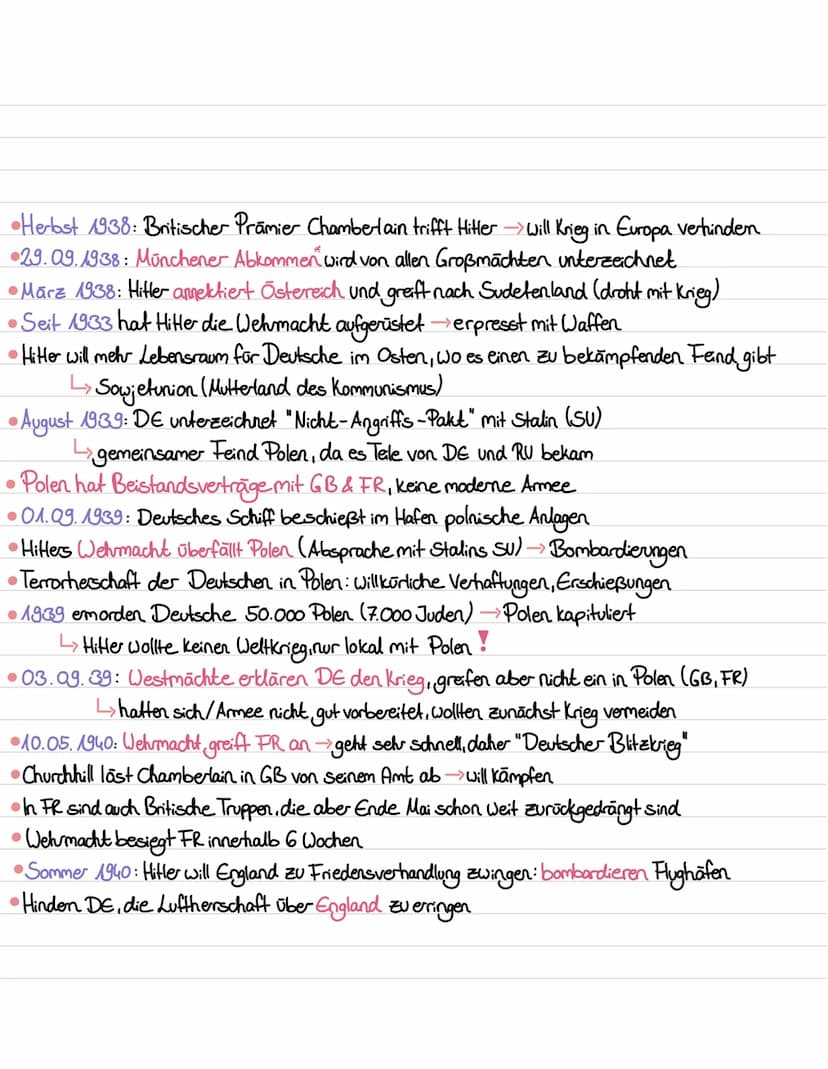 •Herbst 1938: Britischer Prämier Chamberlain trifft Hitler →will Krieg in Europa verhindern
•29.09.1938: Münchener Abkommen* wird von allen Großmächten unterzeichnet
•März 1938: Hitler annektiert Österreich und greift nach Sudetenland (droht mit Krieg)
•Seit 1933 hat Hitler die Wehrmacht aufgerüstet →erpresst mit Waffen
•Hitler will mehr Lebensraum für Deutsche im Osten, wo es einen zu bekämpfenden Feind gibt
↳ Sowjetunion (Mutterland des Kommunismus)
•August 1939: DE unterzeichnet "Nicht-Angriffs-Pakt" mit Stalin (SU)
↳ gemeinsamer Feind Polen, da es Teile von DE und RU bekam
•Polen hat Beistandsverträge mit GB & FR, keine moderne Armee
•01.09.1939: Deutsches Schiff beschießt im Hafen polnische Anlagen
•Hitlers Wehrmacht überfällt Polen (Absprache mit Stalins SU) →Bombardierungen
•Terrorherschaft der Deutschen in Polen: willkürliche Verhaftungen, Erschießungen
•1939 ermorden Deutsche 50.000 Polen (7.000 Juden) →Polen kapituliert
↳ Hitler wollte keinen Weltkrieg, nur lokal mit Polen !
•03.09.39: Westmächte erklären DE den Krieg, greifen aber nicht ein in Polen (GB, FR)
↳ hatten sich/Armee nicht gut vorbereitet, wollten zunächst Krieg vermeiden
•10.05.1940: Wehrmacht greift FR an →geht sehr schnell, daher "Deutscher Blitzkrieg"
•Churchhill löst Chamberlain in GB von seinem Amt ab →will kämpfen
•In FR sind auch Britische Truppen, die aber Ende Mai schon weit zurückgedrängt sind
•Wehrmacht besiegt FR innerhalb 6 Wochen
•Sommer 1940: Hitler will England zu Friedensverhandlung zwingen: bombardieren Flughäfen
•Hindern DE, die Luftherschaft über England zu erringen